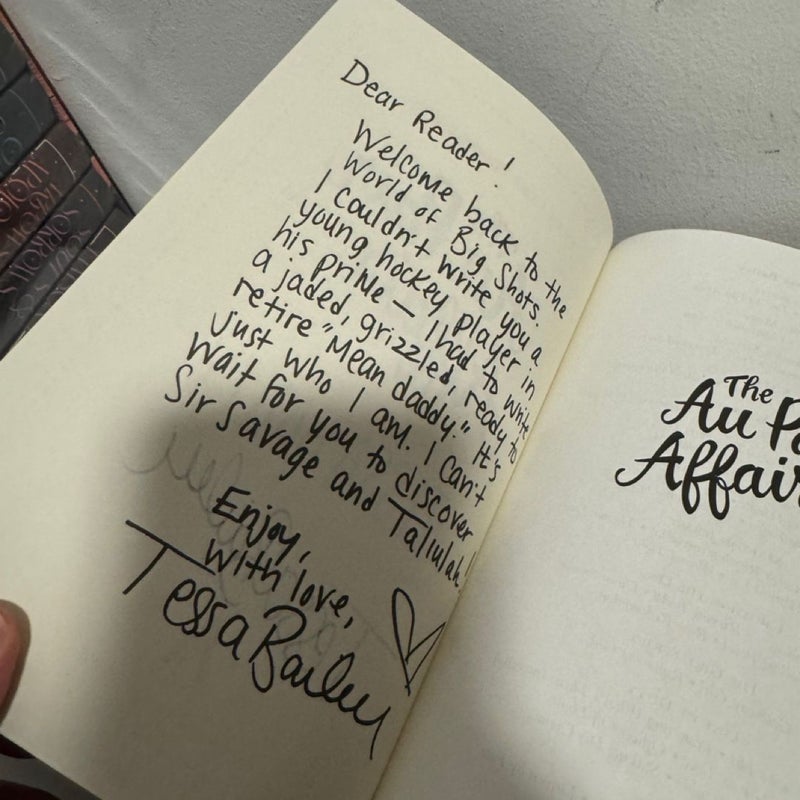 Dear Reader!
Welcome back to the
World of Big Shots.
I couldn't write you a
young hockey player in
his prime — I had to write
a jaded, grizzled, ready to
retire "Mean daddy." It's
just who I am. I can't
wait for you to discover
Sir Savage and Tallulah!
Enjoy,
with love,
Tessa Bailey
The
Au
Affair